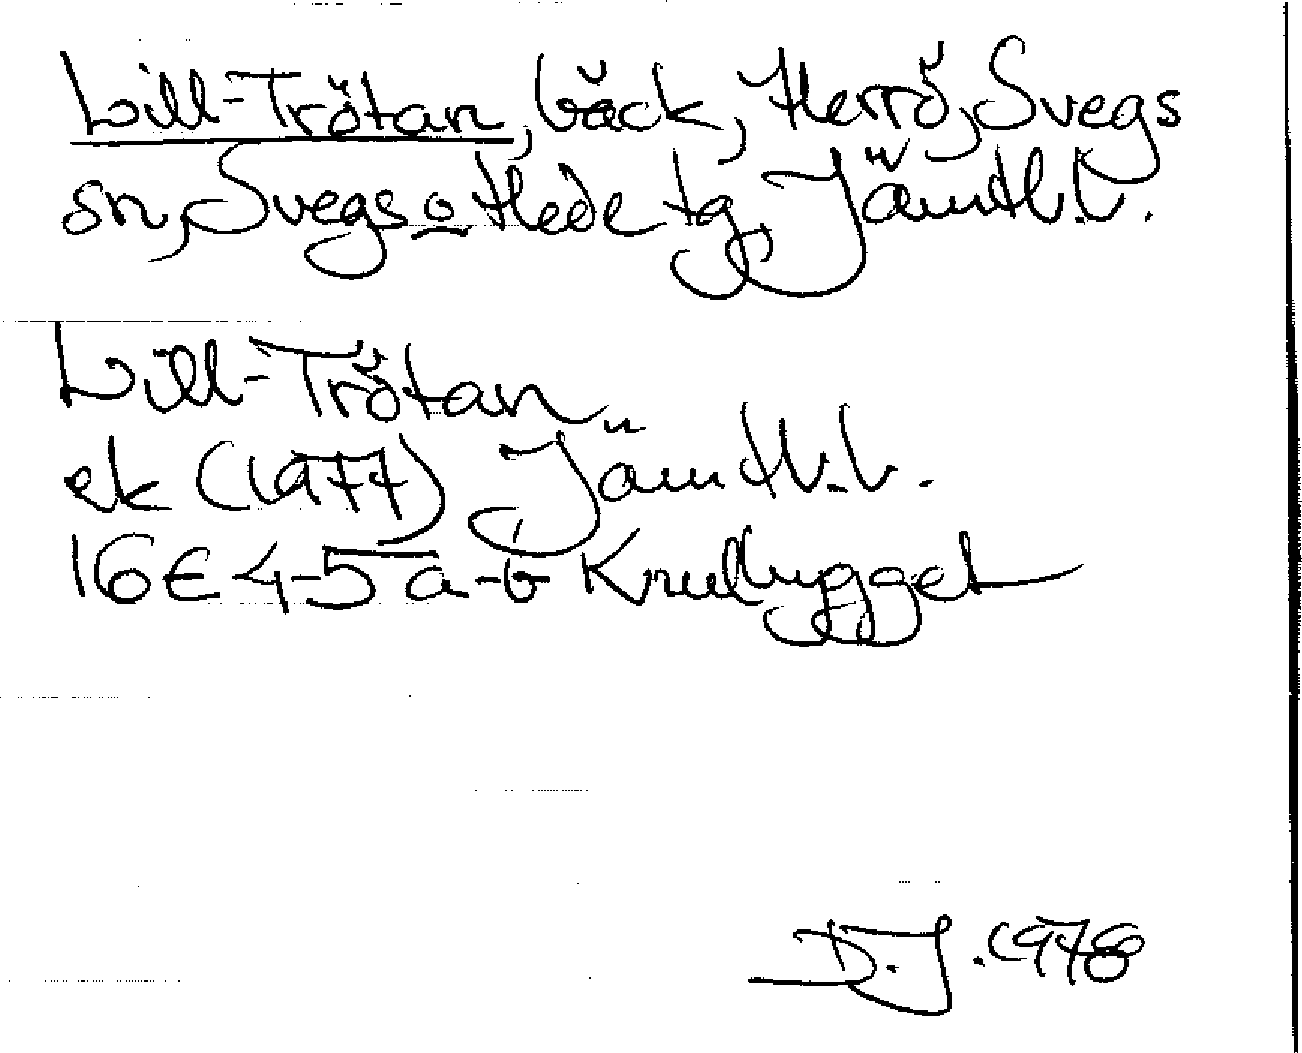 Lill-Trötan, bäck, Herrö, Svegs
sn, Svegs o Hede tg, Jämtl.l.
Lill-Trötan
ek (1977) Jämtl.l.
16E 4-5 a-b Krullugget
D.J. 1978